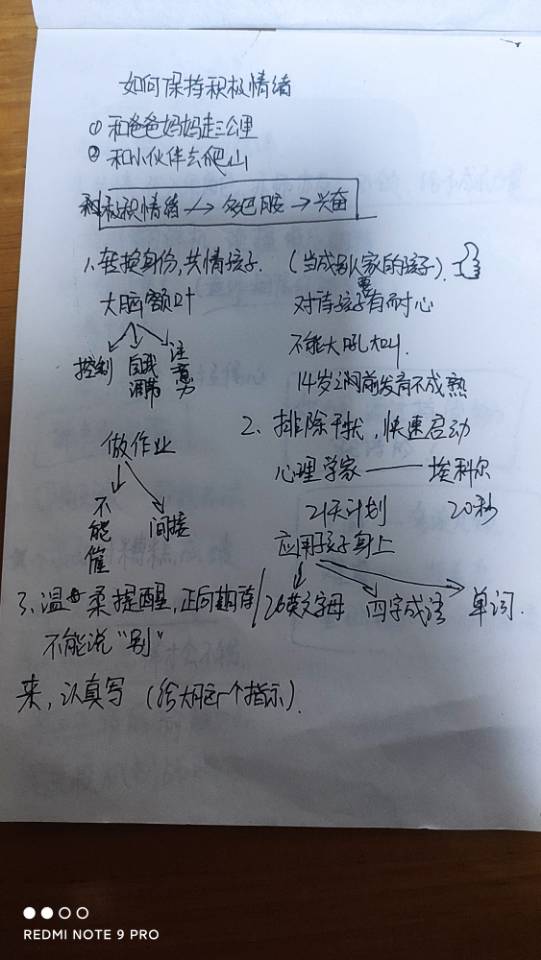 如何保持积极情绪
① 和爸爸妈妈走三公里
② 和小伙伴去爬山
积极情绪 → 多巴胺 → 兴奋
1、转换身份,共情孩子. (当成别人家的孩子)
大脑额叶
对待孩子要有耐心
不能大吼大叫.
控制 自我调节 注意力
14岁之间前发育不成熟
2、排除干扰,快速启动
做作业
心理学家 —— 埃科尔
不能催 间接
21天计划 20秒
应用孩子身上
26英文字母 四字成语 单词.
3、温柔提醒,正向
不能说“别”
来,认真写 (给大脑一个指示).
REDMI NOTE 9 PRO